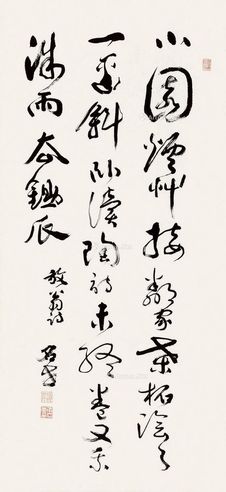 小園煙艸接鄰家桑柘陰々
一徑斜臥讀陶詩未終卷又乘
微雨去鋤瓜
放翁詩